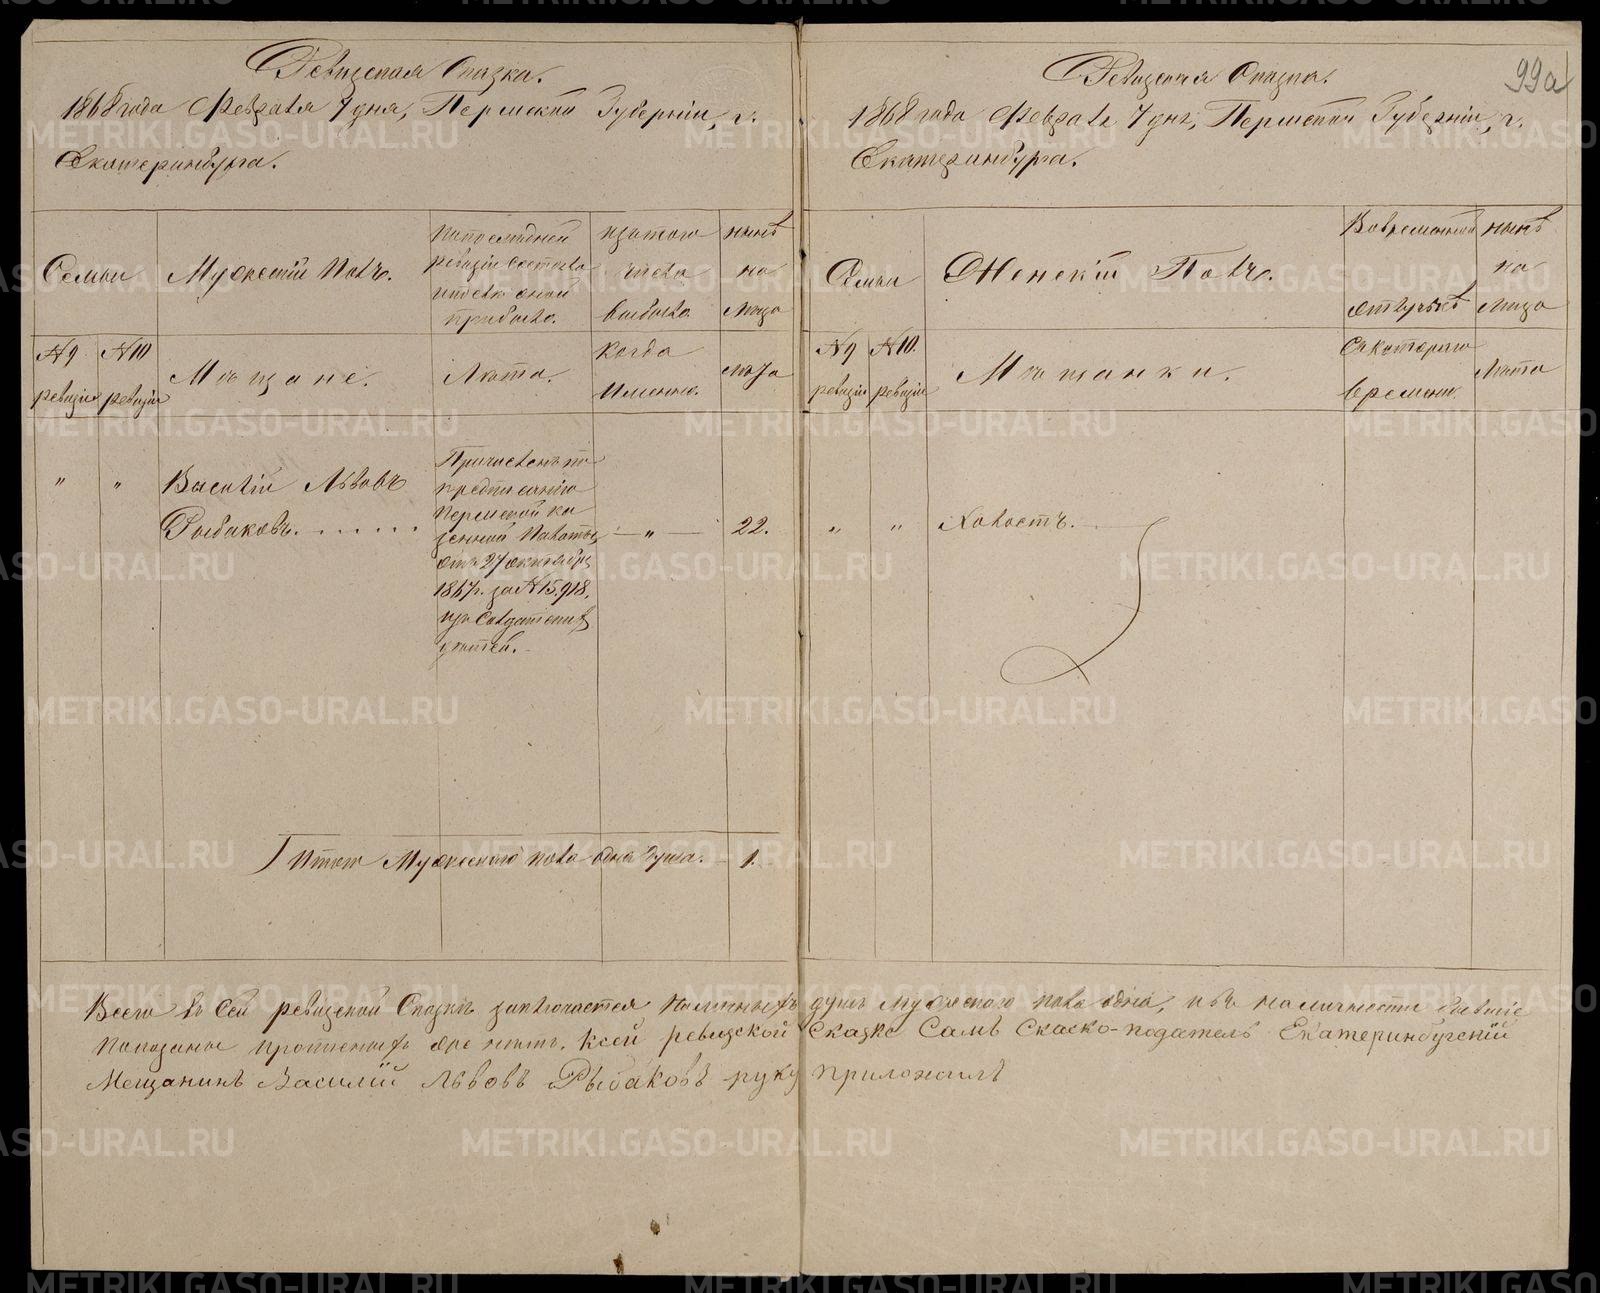 99а
Ревизская Сказка.
1868 года Февраля 7 дня, Пермской Губернии, г.
Екатеринбурга.
Семьи
Мужескій Полъ.
По последней
ревизіи состояло
и после оной
прибыло.
изъ того
числа
выбыло.
ныне
на
лицо
№ 9 ревизіи
№ 10 ревизіи
Мѣщане.
Лѣта.
Когда
Именно.
лѣта
"
"
Василій Львовъ
Рыбаковъ.
Причисленъ по
предписанію
Пермской ка
зенной Палаты
отъ 27 октября
1867 г. за № 15,918,
изъ Солдатскихъ
дѣтей.
"
22.
Итого Мужескаго пола одна душа. 1.
Ревизская Сказка.
1868 года Февраля 7 дня, Пермской Губерніи, г.
Екатеринбурга.
Семьи
Женскій Полъ.
Во временной
отлучкѣ
нынѣ
на
лицо
№ 9 ревизіи
№ 10. ревизіи
Мѣщанки.
Съ котораго
времени.
Лѣта
"
"
Холостъ.
Всего въ сей ревизской Сказкѣ заключается наличныхъ душъ мужескаго пола одна, изъ наличности
показаны прописныхъ же нѣтъ. К сей ревизской Сказке Самъ Скаско-податель Екатеринбугскій
Мещанинъ Василій Львовъ Рыбаковъ руку приложилъ
METRIKI.GASO-URAL.RU